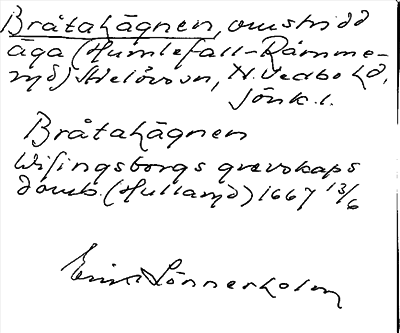 Bråtahägnen, omstridd
äga (Humlefall-Råmme-
myd) Adelövs sn, N. Vedbo hd.
Jönk. l.
Bråtahägnen
Wisingsborgs grevskaps
domb. (Hulland) 1667 13/6
Erik Lönnerholm